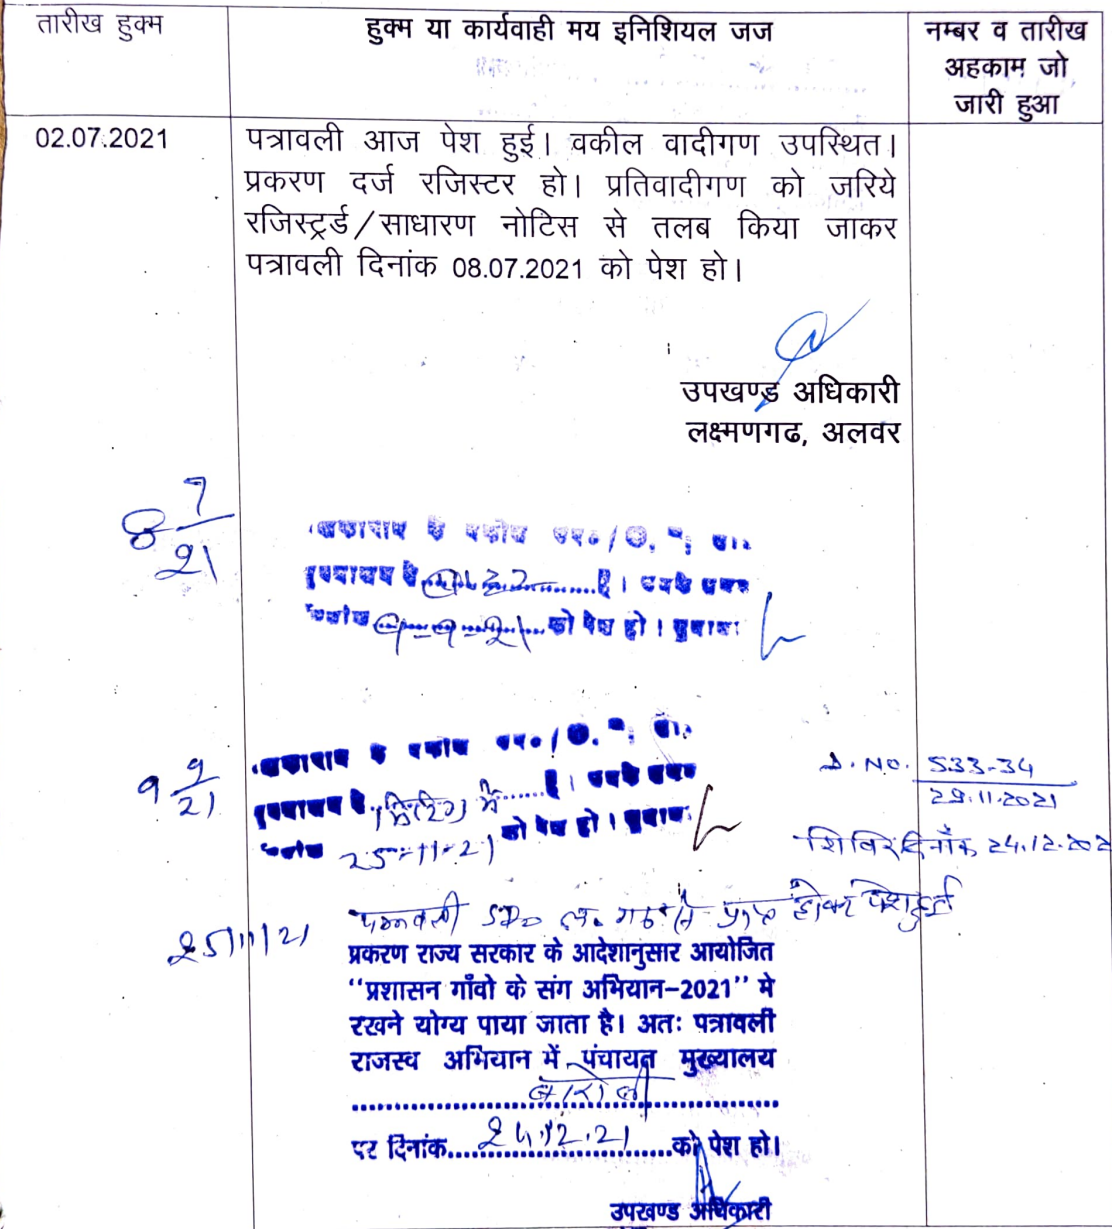 तारीख हुक्म
हुक्म या कार्यवाही मय इनिशियल जज
नम्बर व तारीख
अहकाम जो
जारी हुआ
02.07.2021
पत्रावली आज पेश हुई। वकील वादीगण उपस्थित।
प्रकरण दर्ज रजिस्टर हो। प्रतिवादीगण को जरिये
रजिस्ट्रर्ड/साधारण नोटिस से तलब किया जाकर
पत्रावली दिनांक 08.07.2021 को पेश हो।
उपखण्ड अधिकारी
लक्ष्मणगढ, अलवर
8 7/21
है।
9-9-21 को पेश हो।
9 9/21
मिटिंग में है।
25-11-21 को पेश हो।
D. No. 533-34
29.11.2021
शिविर दिनाँक 24.12.202
25/11/21
पत्रावली SDO से प्राप्त होकर पेश हुई
प्रकरण राज्य सरकार के आदेशानुसार आयोजित
‘‘प्रशासन गाँवो के संग अभियान-2021’’ मे
रखने योग्य पाया जाता है। अतः पत्रावली
राजस्व अभियान में पंचायत मुख्यालय
पर दिनांक 24.12.21 को पेश हो।
उपखण्ड अधिकारी